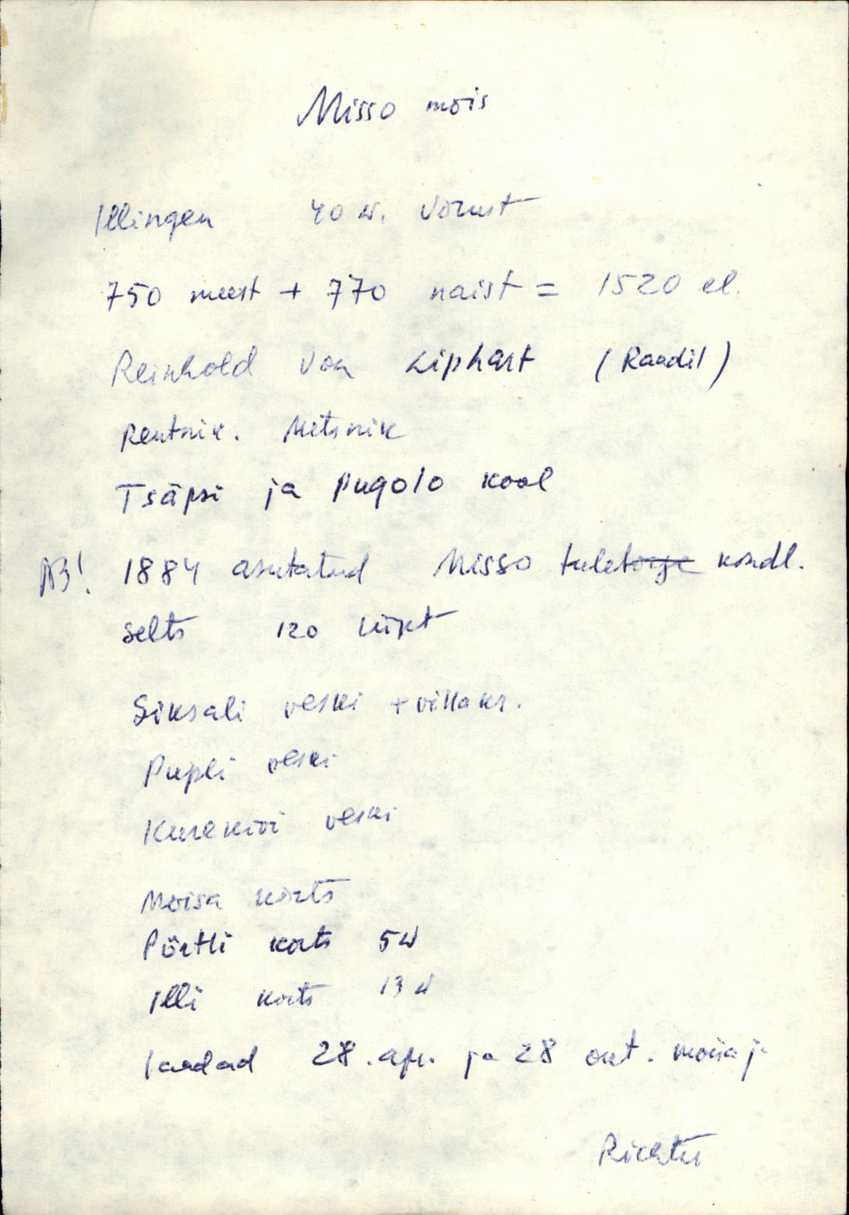 Misso mõis
Illingen 40 w. Võrust
750 meest + 770 naist = 1520 el.
Reinhold von Liphart (Raadil)
Rentnik. Metsnik
Tsäpsi ja Pugolo kool
NB! 1884 asutatud Misso tuletõrje kindl.
selts 120 liiget
Siksali veski + villakr.
Pupli veski
Kurekivi veski
Moisa korts
Põrtli korts 5 w
Illi korts 13 w
Laadad 28. apr. ja 28 okt. moisa j.
Richter